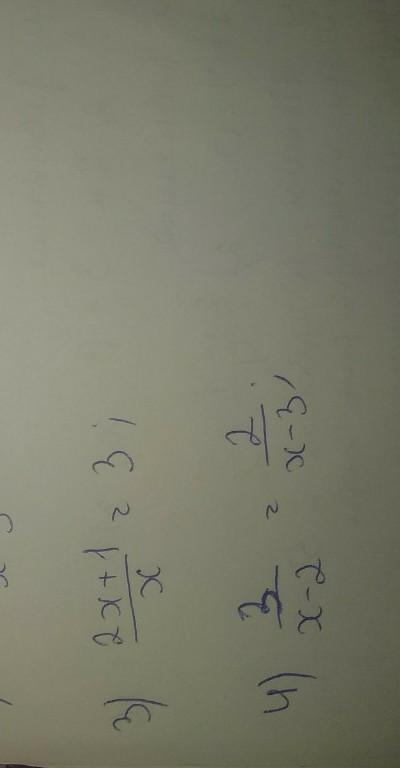 3) \frac{2x+1}{x} = 3;
4) \frac{3}{x-2} = \frac{2}{x-3};